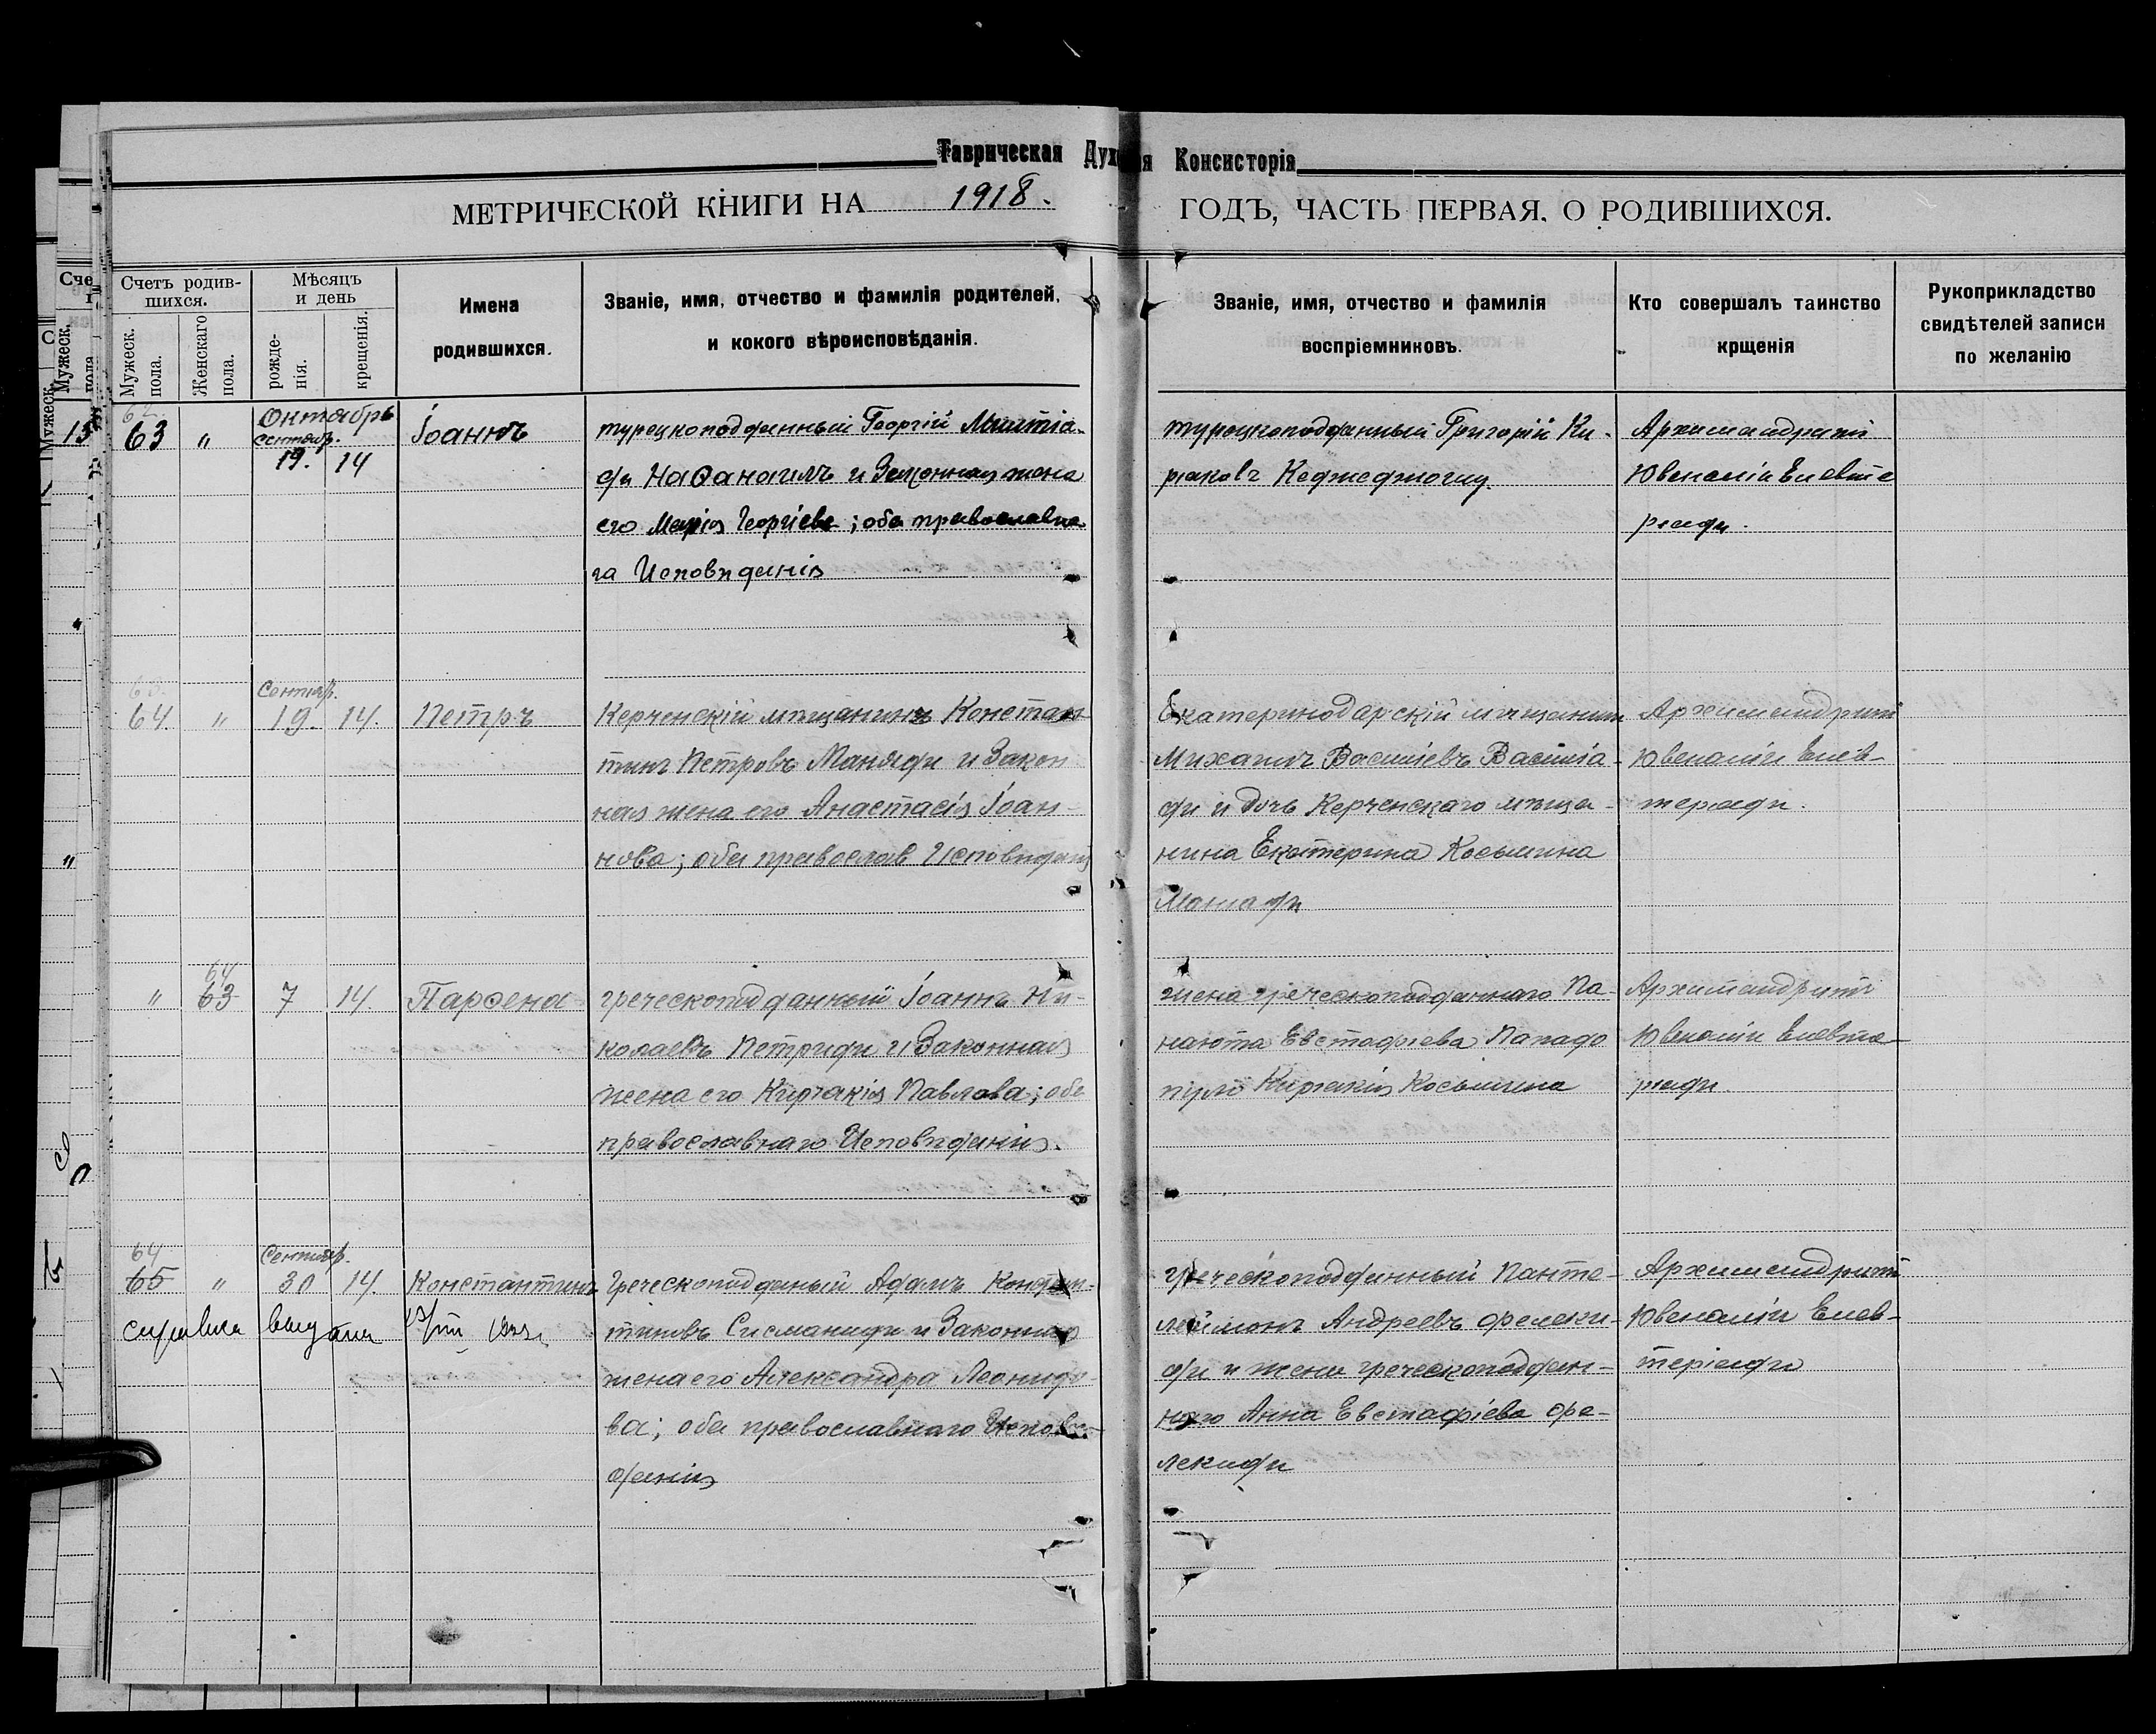 Таврическая Дух я Консисторія
МЕТРИЧЕСКОЙ КНИГИ НА 1918. ГОДЪ, ЧАСТЬ ПЕРВАЯ, О РОДИВШИХСЯ.
Счетъ родив-
шихся.
Мужеск. пола.
Женскаго пола.
Мѣсяцъ
и день
рожде-
нія.
крещенія.
Имена
родившихся.
Званіе, имя, отчество и фамилія родителей,
и кокого вѣроисповѣданія.
Званіе, имя, отчество и фамилія
воспріемниковъ.
Кто совершалъ таинство
крщенія
Рукоприкладство
свидѣтелей записи
по желанію
62.
63 " Октябрь
сентябр.
19. 14
Іоаннъ
турецкоподданный Георгій
ди и Законная жена
его Марія Георгіева; оба православна
га Исповѣданія
турецкоподданный Григорій Ки-
ріаковъ
Архимандритъ
Ювеналій Елевте
ріади.
64. " Сентяр.
19. 14.
Петръ
Керченскій мѣщанинъ Констан
тинъ Петровъ и Закон
ная жена его Анастасія Іоан-
нова; оба православ Исповѣданія
Екатеринодарскій мѣщанинъ
Михаилъ Василіевъ Василіа-
ди и дочь Керченскаго мѣща-
нина Екатерина Косьмина
Архимандритъ
Ювеналій Елев-
теріади.
64
" 63 7 14.
Парѳена
греческоподданный Іоаннъ Ни-
колаевъ Петриди и Законная
жена его Киріакія Павлова; оба
православнаго Исповѣданія.
жена греческоподданнаго Па-
наіота Евстафіева Пападо
пуло Киріакія Косьмина
Архимандритъ
Ювеналій Елевте-
ріади
64
65 " Сентяр.
30 14.
Константинъ
справка выдана
Греческоподданый Адамъ Констан-
тиновъ Сисманиди и Законная
жена его Александра Леонидо-
ва; оба православнаго Исповѣ-
данія
греческоподданный Панте-
леймонъ Андреевъ Фелеки-
ди и жена греческоподдан-
наго Анна Евстафіева Фе-
лекиди
Архимандритъ
Ювеналій Елев-
теріади